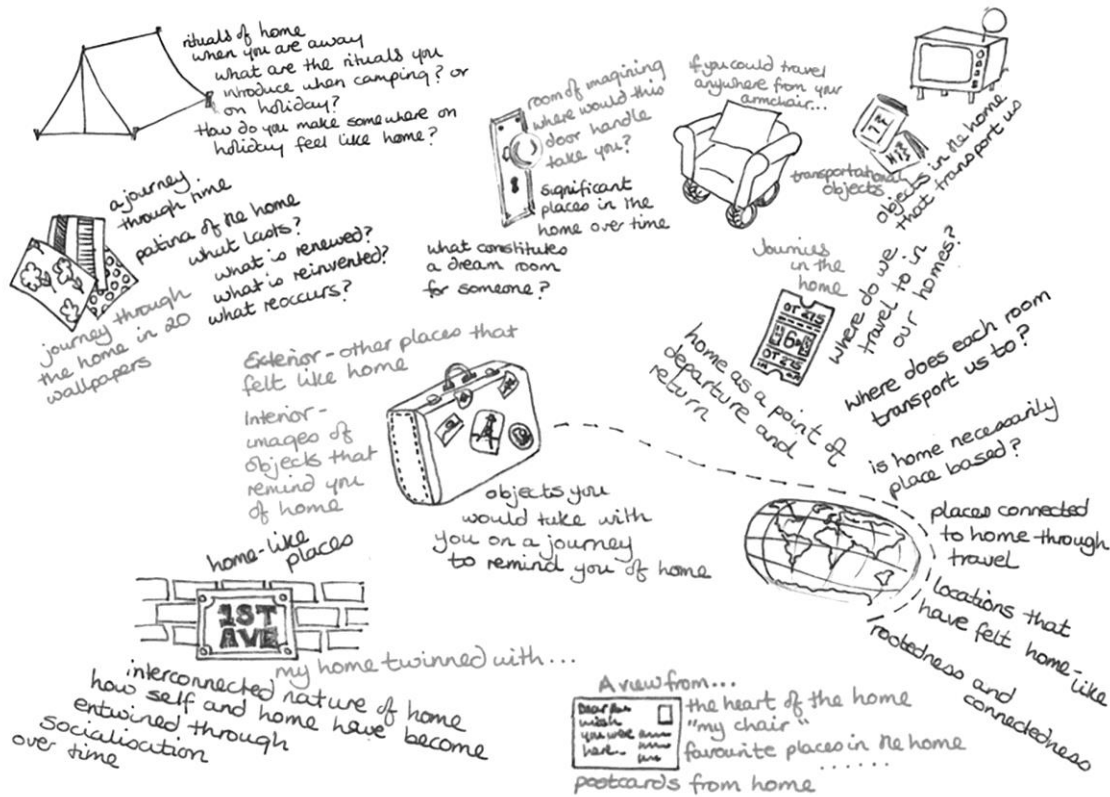 rituals of home
when you are away
what are the rituals you
introduce when camping? or
on holiday?
How do you make somewhere on
holiday feel like home?
room of imagining
where would this
door handle
take you?
significant
places in the
home over time
what constitutes
a dream room
for someone?
if you could travel
anywhere from your
armchair...
transportational
objects
objects in the home
that transport us
a journey
through time
patina of the home
what lasts?
what is renewed?
what is reinvented?
what reoccurs?
journey through
the home in 20
wallpapers
Journies
in the
home
where do we
travel to in
our homes?
OT 275
6
OT 275
home as a point of
departure and
return
where does each room
transport us to?
is home necessarily
place based?
Exterior - other places that
felt like home
Interior -
images of
objects that
remind you
of home
objects you
would take with
you on a journey
to remind you of home
places connected
to home through
travel
locations that
have felt home-like
rootedness and
connectedness
home-like
places
1ST
AVE
my home twinned with...
interconnected nature of home
how self and home have become
entwined through
socialisation
over time
A view from...
the heart of the home
"my chair"
favourite places in the home
......
Dear
wish
you were
here
postcards from home